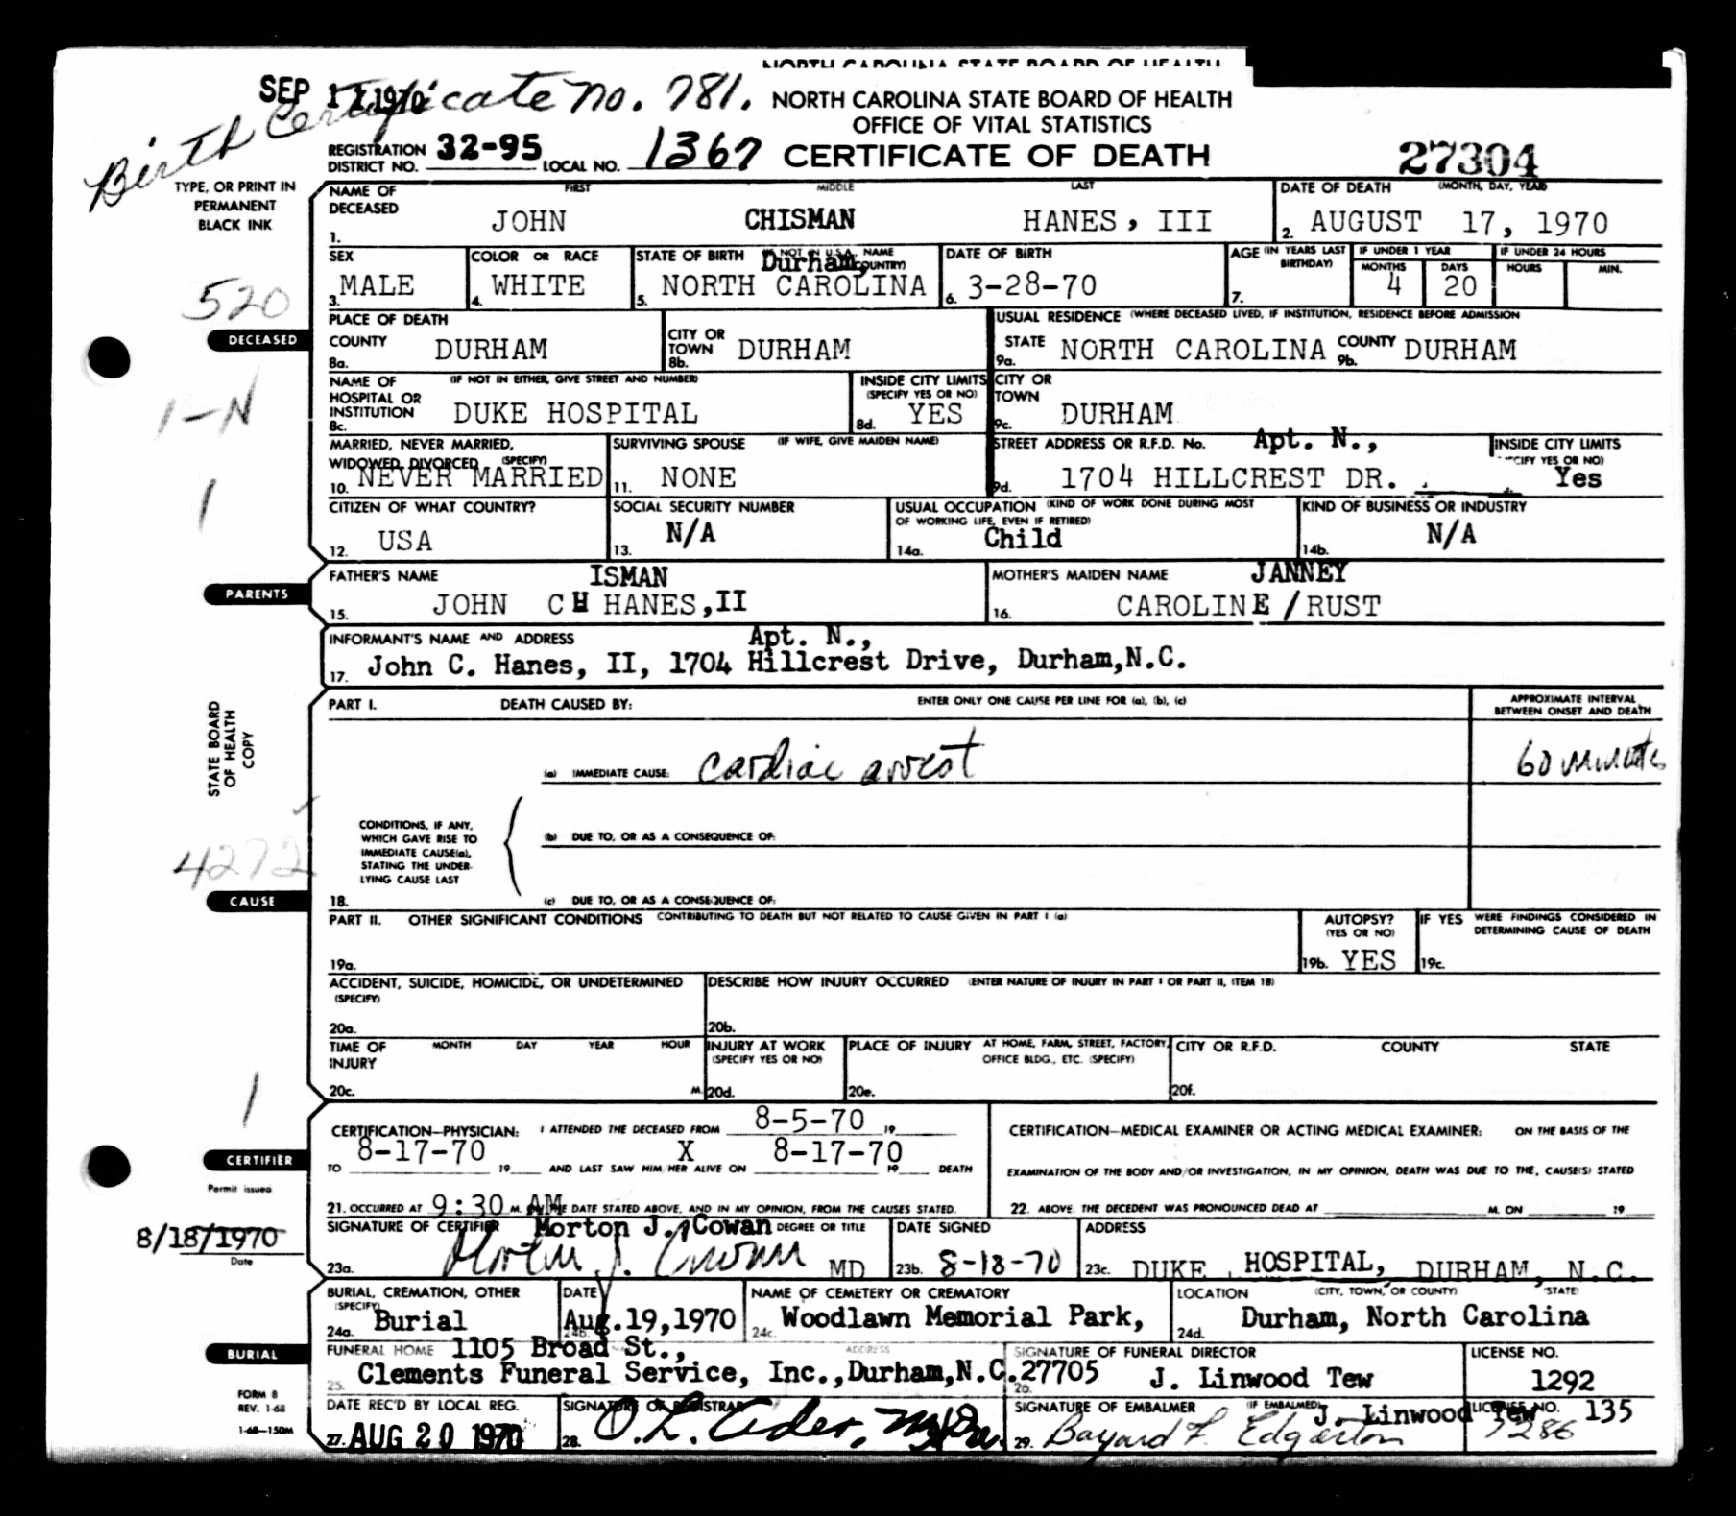 SEP 17 1970
Birth Certificate no. 781.
NORTH CAROLINA STATE BOARD OF HEALTH
NORTH CAROLINA STATE BOARD OF HEALTH
OFFICE OF VITAL STATISTICS
REGISTRATION DISTRICT NO. 32-95 LOCAL NO. 1367 CERTIFICATE OF DEATH 27304
TYPE, OR PRINT IN
PERMANENT
BLACK INK
NAME OF DECEASED FIRST MIDDLE LAST DATE OF DEATH (MONTH, DAY, YEAR)
1. JOHN CHISMAN HANES, III 2. AUGUST 17, 1970
SEX COLOR OR RACE STATE OF BIRTH (IF NOT IN U.S.A., NAME COUNTRY) DATE OF BIRTH AGE (IN YEARS LAST BIRTHDAY) IF UNDER 1 YEAR MONTHS DAYS IF UNDER 24 HOURS HOURS MIN.
Durham,
3. MALE 4. WHITE 5. NORTH CAROLINA 6. 3-28-70 7. 4 20
520
DECEASED
PLACE OF DEATH USUAL RESIDENCE (WHERE DECEASED LIVED, IF INSTITUTION, RESIDENCE BEFORE ADMISSION
COUNTY 8a. DURHAM CITY OR TOWN 8b. DURHAM STATE 9a. NORTH CAROLINA COUNTY 9b. DURHAM
NAME OF HOSPITAL OR INSTITUTION (IF NOT IN EITHER, GIVE STREET AND NUMBER) INSIDE CITY LIMITS (SPECIFY YES OR NO) CITY OR TOWN
8c. DUKE HOSPITAL 8d. YES 9c. DURHAM
1-N
MARRIED, NEVER MARRIED, WIDOWED, DIVORCED (SPECIFY) SURVIVING SPOUSE (IF WIFE, GIVE MAIDEN NAME) STREET ADDRESS OR R.F.D. No. Apt. N., INSIDE CITY LIMITS (SPECIFY YES OR NO)
10. NEVER MARRIED 11. NONE 9d. 1704 HILLCREST DR. Yes
1
CITIZEN OF WHAT COUNTRY? SOCIAL SECURITY NUMBER USUAL OCCUPATION (KIND OF WORK DONE DURING MOST OF WORKING LIFE, EVEN IF RETIRED) KIND OF BUSINESS OR INDUSTRY
12. USA 13. N/A 14a. Child 14b. N/A
PARENTS
FATHER'S NAME ISMAN MOTHER'S MAIDEN NAME JANNEY
15. JOHN CH HANES, II 16. CAROLINE / RUST
INFORMANT'S NAME AND ADDRESS Apt. N.,
17. John C. Hanes, II, 1704 Hillcrest Drive, Durham, N.C.
STATE BOARD
OF HEALTH
COPY
PART I. DEATH CAUSED BY: ENTER ONLY ONE CAUSE PER LINE FOR (a), (b), (c) APPROXIMATE INTERVAL BETWEEN ONSET AND DEATH
(a) IMMEDIATE CAUSE: cardiac arrest 60 minutes
CONDITIONS, IF ANY,
WHICH GAVE RISE TO
IMMEDIATE CAUSE(a),
STATING THE UNDER-
LYING CAUSE LAST
(b) DUE TO, OR AS A CONSEQUENCE OF:
4272
CAUSE
18. (c) DUE TO, OR AS A CONSEQUENCE OF:
PART II. OTHER SIGNIFICANT CONDITIONS CONTRIBUTING TO DEATH BUT NOT RELATED TO CAUSE GIVEN IN PART I (a) AUTOPSY? (YES OR NO) IF YES WERE FINDINGS CONSIDERED IN DETERMINING CAUSE OF DEATH
19a. 19b. YES 19c.
ACCIDENT, SUICIDE, HOMICIDE, OR UNDETERMINED (SPECIFY) DESCRIBE HOW INJURY OCCURRED (ENTER NATURE OF INJURY IN PART I OR PART II, ITEM 18)
20a. 20b.
TIME OF INJURY MONTH DAY YEAR HOUR INJURY AT WORK (SPECIFY YES OR NO) PLACE OF INJURY AT HOME, FARM, STREET, FACTORY, OFFICE BLDG., ETC. (SPECIFY) CITY OR R.F.D. COUNTY STATE
20c. M. 20d. 20e. 20f.
1
CERTIFIER
CERTIFICATION—PHYSICIAN: I ATTENDED THE DECEASED FROM 8-5-70 19 CERTIFICATION—MEDICAL EXAMINER OR ACTING MEDICAL EXAMINER: ON THE BASIS OF THE
TO 8-17-70 19 AND LAST SAW HIM/HER ALIVE ON X 8-17-70 19 DEATH EXAMINATION OF THE BODY AND/OR INVESTIGATION, IN MY OPINION, DEATH WAS DUE TO THE, CAUSE(S) STATED
21. OCCURRED AT 9:30 M. AM THE DATE STATED ABOVE, AND IN MY OPINION, FROM THE CAUSES STATED. 22. ABOVE. THE DECEDENT WAS PRONOUNCED DEAD AT M. ON 19
Permit issued
8/18/1970
Date
SIGNATURE OF CERTIFIER Morton J. Cowan DEGREE OR TITLE DATE SIGNED ADDRESS
23a. Morton J. Cowan MD 23b. 8-18-70 23c. DUKE HOSPITAL, DURHAM, N.C.
BURIAL, CREMATION, OTHER (SPECIFY) DATE NAME OF CEMETERY OR CREMATORY LOCATION (CITY, TOWN, OR COUNTY) (STATE)
24a. Burial 24b. Aug. 19, 1970 24c. Woodlawn Memorial Park, 24d. Durham, North Carolina
BURIAL
FUNERAL HOME 1105 Broad St., ADDRESS SIGNATURE OF FUNERAL DIRECTOR LICENSE NO.
25. Clements Funeral Service, Inc., Durham, N.C. 27705 26. J. Linwood Tew 1292
FORM 8
REV. 1-68
1-68-150M
DATE REC'D BY LOCAL REG. SIGNATURE OF REGISTRAR SIGNATURE OF EMBALMER (IF EMBALMED) J. Linwood Tew LICENSE NO. 135
27. AUG 20 1970 28. O. L. 29. Bayard F. Edgerton 286